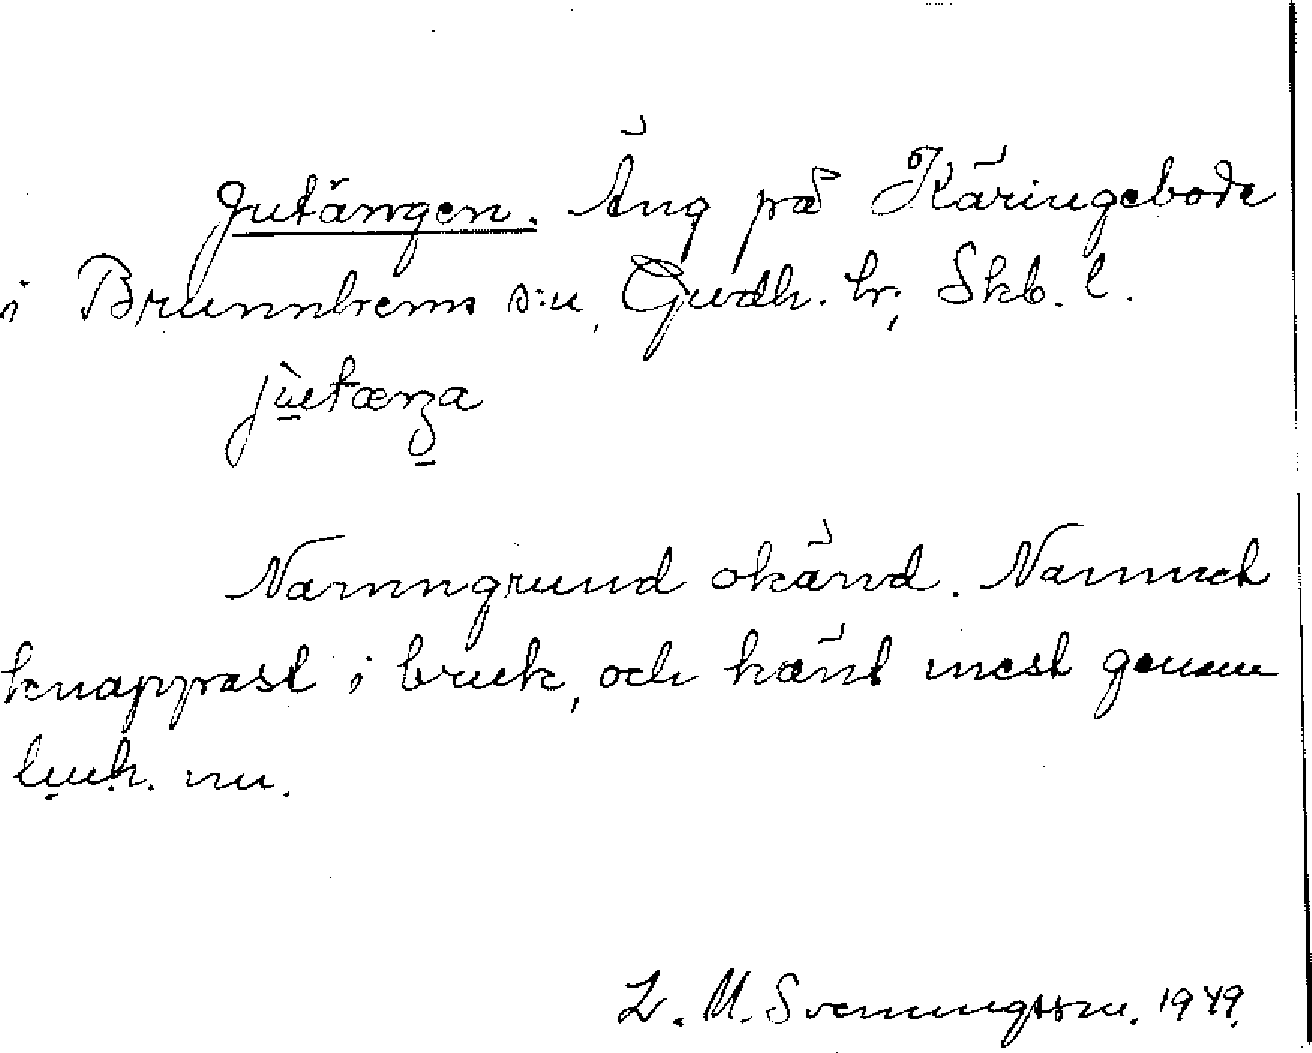 Jutängen. Äng på Käringebode
i Brunnhems s:n, Gudh. hr, Skb. l.
Namngrund okänd. Namnet
knappast i bruk, och känt mest genom
nu.
L. M. Svenungsson. 1949.